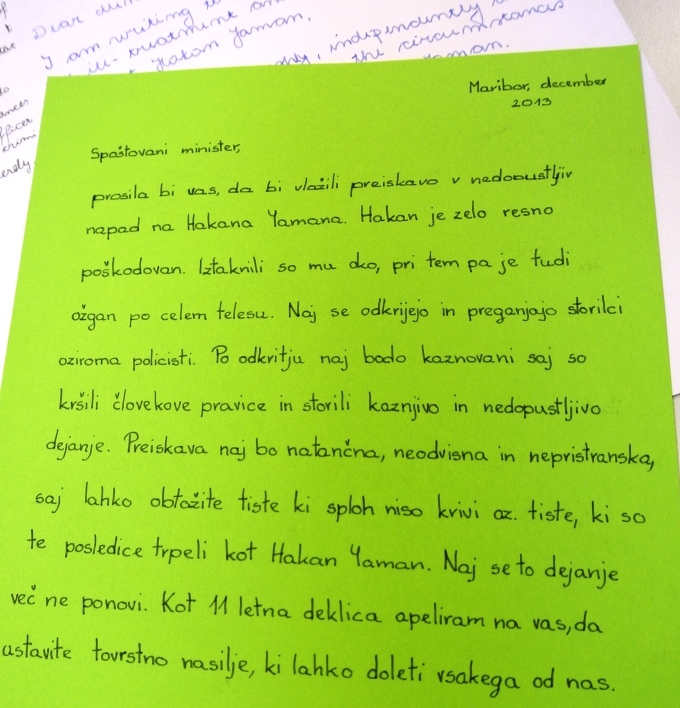 Dear
I am writing to
ill-treatment and
Hakan Yaman.
independently
the circumstances
Yaman.
Maribor, december
2013
Spaštovani minister,
prosila bi vas, da bi vložili preiskavo v nedopustljiv
napad na Hakana Yamana. Hakan je zelo resno
poškodovan. Iztaknili so mu oko, pri tem pa je tudi
ožgan po celem telesu. Naj se odkrijejo in preganjajo storilci
oziroma policisti. Po odkritju naj bodo kaznovani saj so
kršili človekove pravice in storili kaznjivo in nedopustljivo
dejanje. Preiskava naj bo natančna, neodvisna in nepristranska,
saj lahko obtožite tiste ki sploh niso krivi oz. tiste, ki so
te posledice trpeli kot Hakan Yaman. Naj se to dejanje
več ne ponovi. Kot 11 letna deklica apeliram na vas, da
ustavite tovrstno nasilje, ki lahko doleti vsakega od nas.